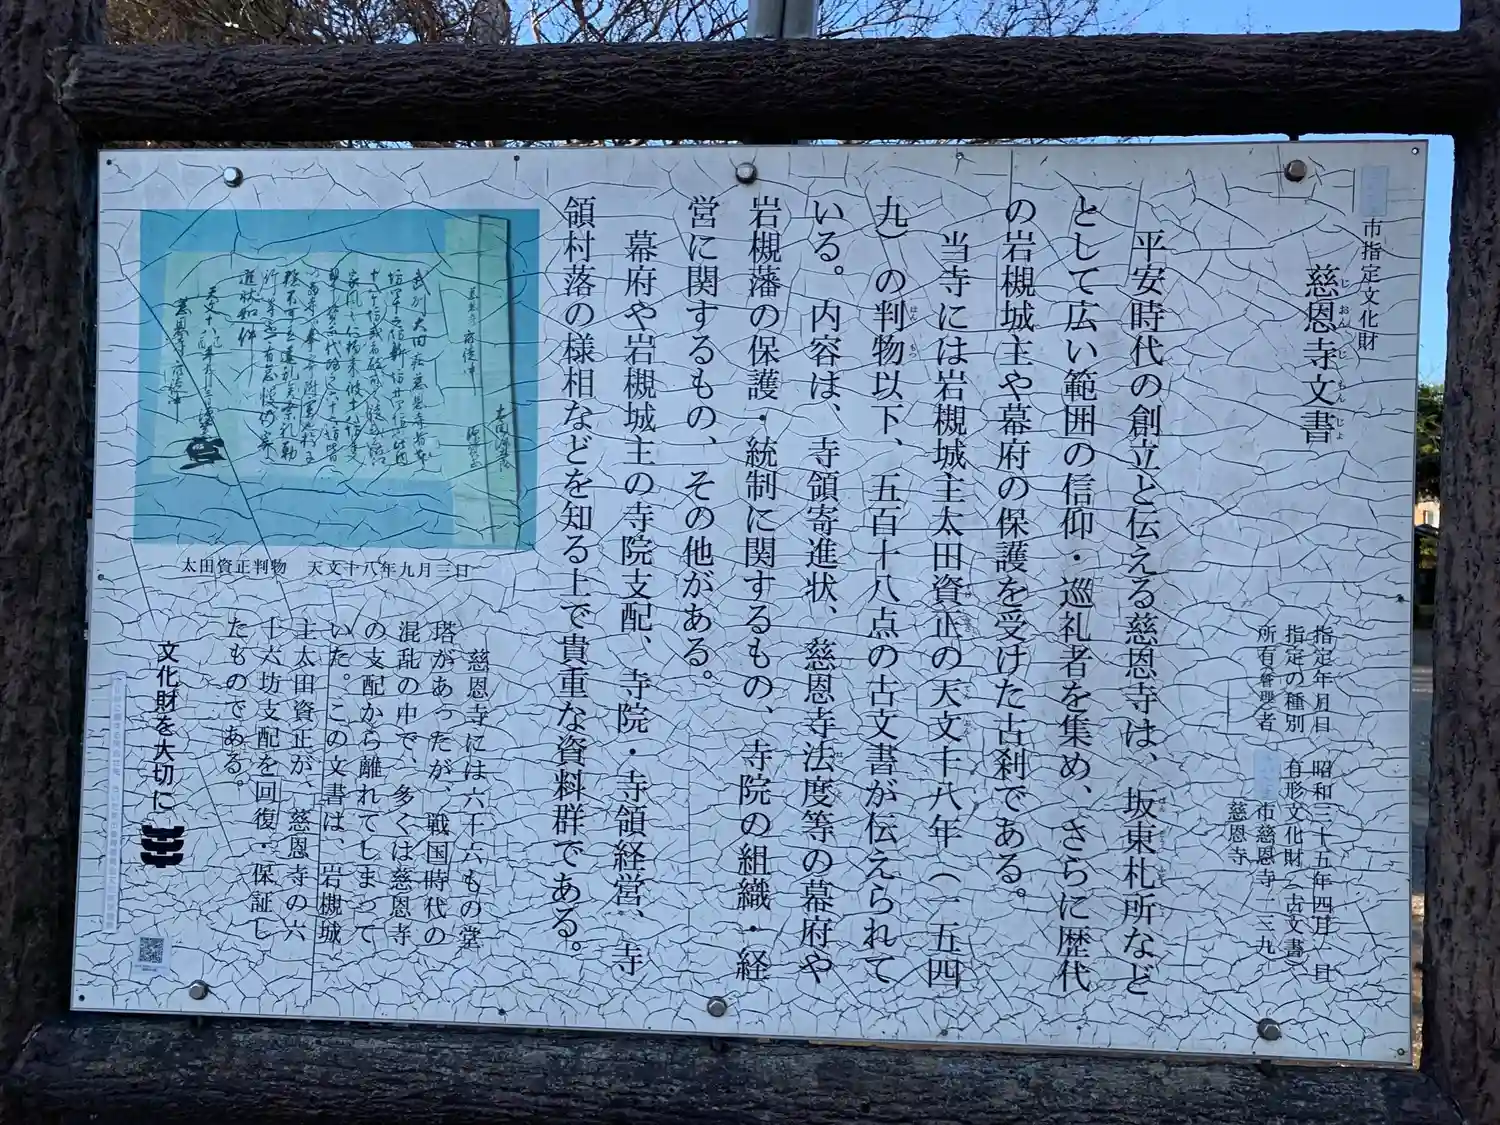 市指定文化財
慈恩寺文書
じおんじもんじょ
指定年月日　昭和三十五年四月一日
指定の種別　有形文化財（古文書）
所有管理者　市慈恩寺一三九
慈恩寺
平安時代の創立と伝える慈恩寺は、坂東札所など
として広い範囲の信仰・巡礼者を集め、さらに歴代
の岩槻城主や幕府の保護を受けた古刹である。
当寺には岩槻城主太田資正の天文十八年（一五四
九）の判物以下、五百十八点の古文書が伝えられて
いる。内容は、寺領寄進状、慈恩寺法度等の幕府や
岩槻藩の保護・統制に関するもの、寺院の組織・経
営に関するもの、その他がある。
幕府や岩槻城主の寺院支配、寺院・寺領経営、寺
領村落の様相などを知る上で貴重な資料群である。
太田資正判物　天文十八年九月三日
慈恩寺には六十六もの堂
塔があったが、戦国時代の
混乱の中で、多くは慈恩寺
の支配から離れてしまって
いた。この文書は、岩槻城
主太田資正が、慈恩寺の六
十六坊支配を回復・保証し
たものである。
文化財を大切に